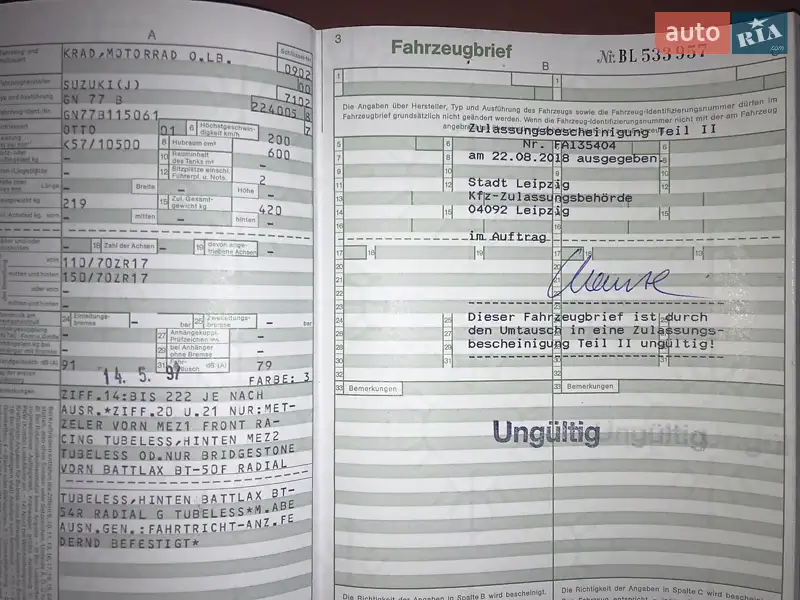 A
KRAD,MOTORRAD O.LB.
0902
00
SUZUKI(J)
7102
GN 77 B
224005 8
GN77B115061
7
OTTO
01
6 Höchstgeschwin-
digkeit km/h
200
K57/10500
8 Hubraum cm³
600
10 Rauminhalt
des Tanks m³
–
12 Sitzplätze einschl.
Führerpl. u. Nots.
2
Länge
Breite
–
Höhe
–
219
15 Zul. Gesamt-
gewicht kg
420
vorn
mitten
–
hinten
–
18 Zahl der Achsen
–
19 davon ange-
triebene Achsen
–
vorn
110/70ZR17
mitten und hinten
150/70ZR17
oder vorn
–
mitten und hinten
–
24 Einleitungs-
bremse
– bar
25 Zweileitungs-
bremse
– bar
27 Anhängekuppl.
Prüfzeichen
–
29 bei Anhänger
ohne Bremse
–
91
31
dB (A)
79
14. 5. 97
FARBE: 3
ZIFF.14:BIS 222 JE NACH
AUSR.*ZIFF.20 U.21 NUR:MET-
ZELER VORN MEZ1 FRONT RA-
CING TUBELESS,HINTEN MEZ2
TUBELESS OD.NUR BRIDGESTONE
VORN BATTLAX BT-50F RADIAL
TUBELESS,HINTEN BATTLAX BT-
54R RADIAL G TUBELESS*M.ABE
AUSN.GEN.:FAHRTRICHT-ANZ.FE
DERND BEFESTIGT*
3
Fahrzeugbrief
Nr. BL 533957
B
Die Angaben über Hersteller, Typ und Ausführung des Fahrzeugs sowie die Fahrzeug-Identifizierungsnummer dürfen im
Fahrzeugbrief grundsätzlich nicht geändert werden. Wenn die Fahrzeug-Identifizierungsnummer nicht mit der am Fahrzeug
Zulassungsbescheinigung Teil II
Nr. FA135404
am 22.08.2018 ausgegeben.
Stadt Leipzig
Kfz-Zulassungsbehörde
04092 Leipzig
im Auftrag
Dieser Fahrzeugbrief ist durch
den Umtausch in eine Zulassungs-
bescheinigung Teil II ungültig!
33 Bemerkungen
33 Bemerkungen
Ungültig
Die Richtigkeit der Angaben in Spalte B wird bescheinigt.
Die Richtigkeit der Angaben in Spalte C wird bescheinigt.
auto RIA
.com